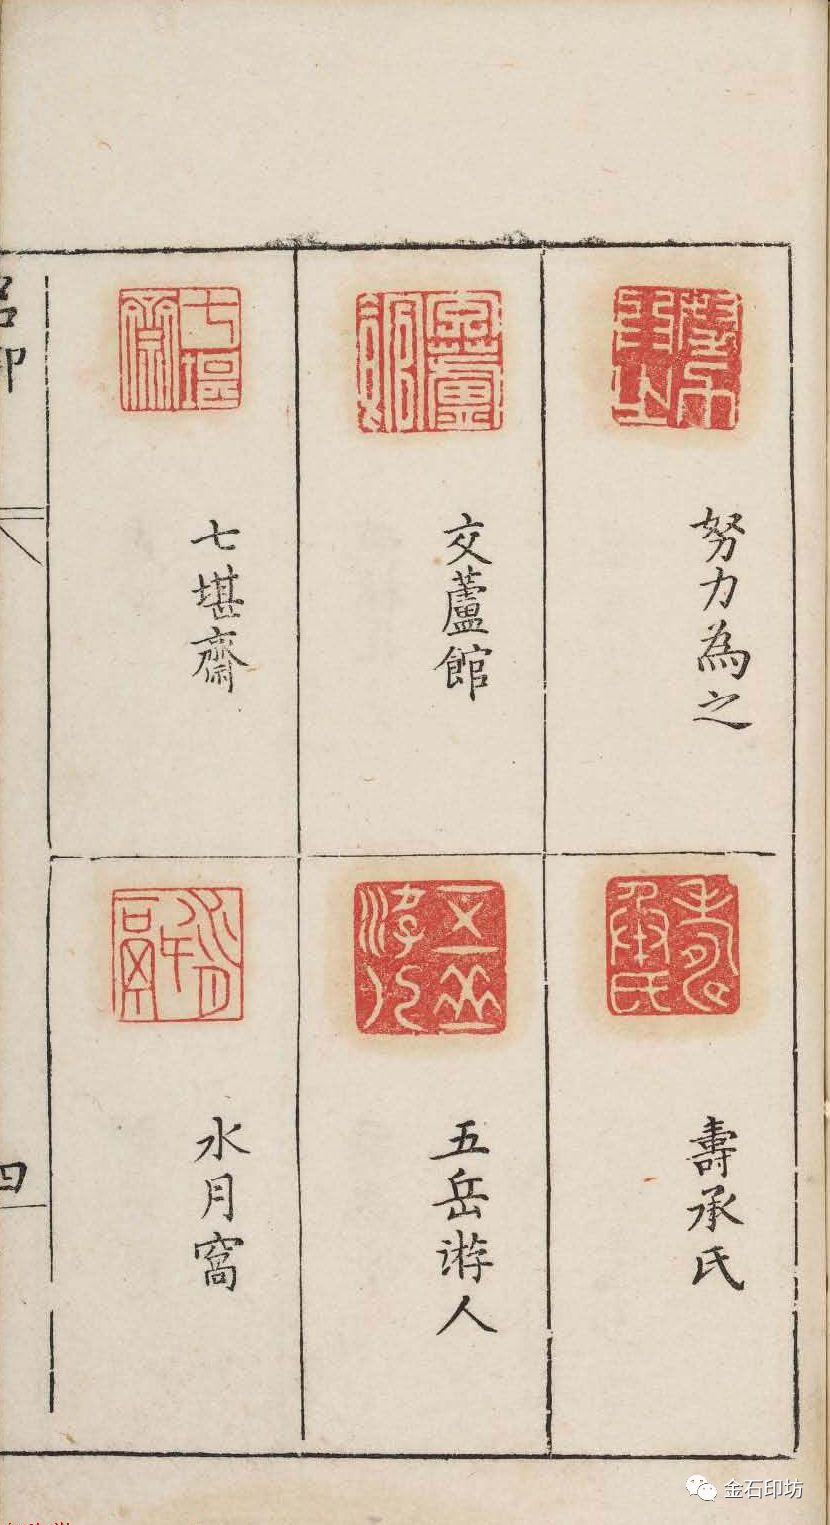 努力為之
交蘆館
七堪齋
壽承氏
五岳游人
水月窩
四
金石印坊